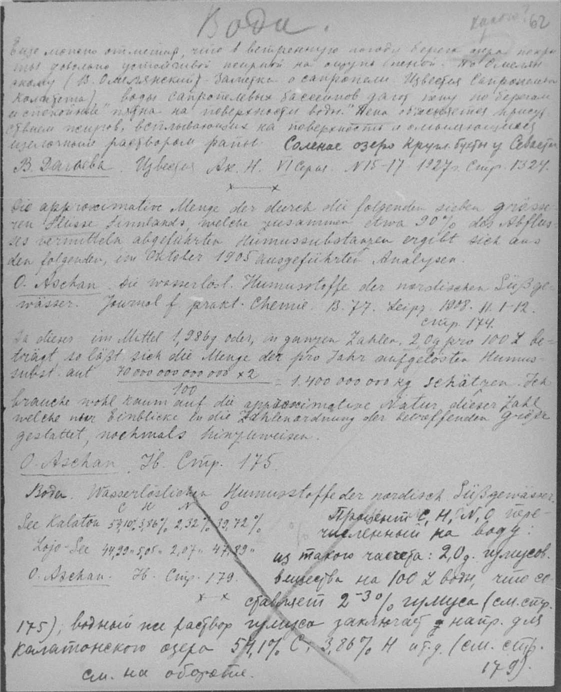 Вода.
62
Еще можно отметить, что в ветренную погоду берега озера покры-
ты довольно устойчивой пеной на ощупь
скому (В. Омелянский. Заметка о сапропели. Известия Сапропелев.
Комитета) воды сапропелевых бассейнов дают пену по берегам
и спокойный пятна на поверхности воды." Пена объясняется присут-
ствием жиров, всплывающих на поверхность и омыляющихся
щелочным раствором рапы. Соленое озеро Круглое бухты у Севаст
В. Дагаева. Известия Ак. Н. VI Серия. N 15-17 1927 г. Стр. 1324.
Die approximative Menge der durch die folgenden sieben grösse-
ren Flüsse Finnlands, welche zusammen etwa 90% des Abflus-
ses vermitteln, abgeführten Humussubstanzen ergibt sich aus
den folgenden, im Oktober 1905 ausgeführten Analysen.
O. Aschan. Die wasserlösl. Humusstoffe der nordischen Süßge-
wässer. Journal f. prakt. Chemie. B. 77. Leipz. 1908. H. 1-12.
Стр. 174.
Da dieses im Mittel 1,986 g oder, in ganzen Zahlen, 2,0 g pro 100 L be-
trägt, so läßt sich die Menge der pro Jahr aufgelösten Humus-
subst. auf 70 000 000 000 000 × 2 / 100 = 1.400 000 000 kg schätzen. Ich
brauche wohl kaum auf die approximative Natur dieser Zahl,
welche nur Einblicke in die Zahlenordnung der betreffenden Größe
gestattet, nochmals hinzuweisen.
O. Aschan. Ib. Стр. 175.
Воды. Wasserlöslichen Humusstoffe der nordisch. Süßgewässer.
C H N O
See Kalaton 54,10% 3,86% 2,32% 39,72%
Lojo-See 44,99 " 5,05 " 2,07 " 47,89 "
O. Aschan. Ib. Стр. 179.
Процент C, H, N, O пере-
численный на воду:
из такого расчета: 2,0 g. гумусов.
вещества на 100 L воды, что со-
ставляет 2-3% гумуса (см. стр.
175); водный же раствор гумуса заключает напр. для
Калатонского озера 54,1% C, 3,86% H и т.д. (см. стр.
179).
см. на обороте.